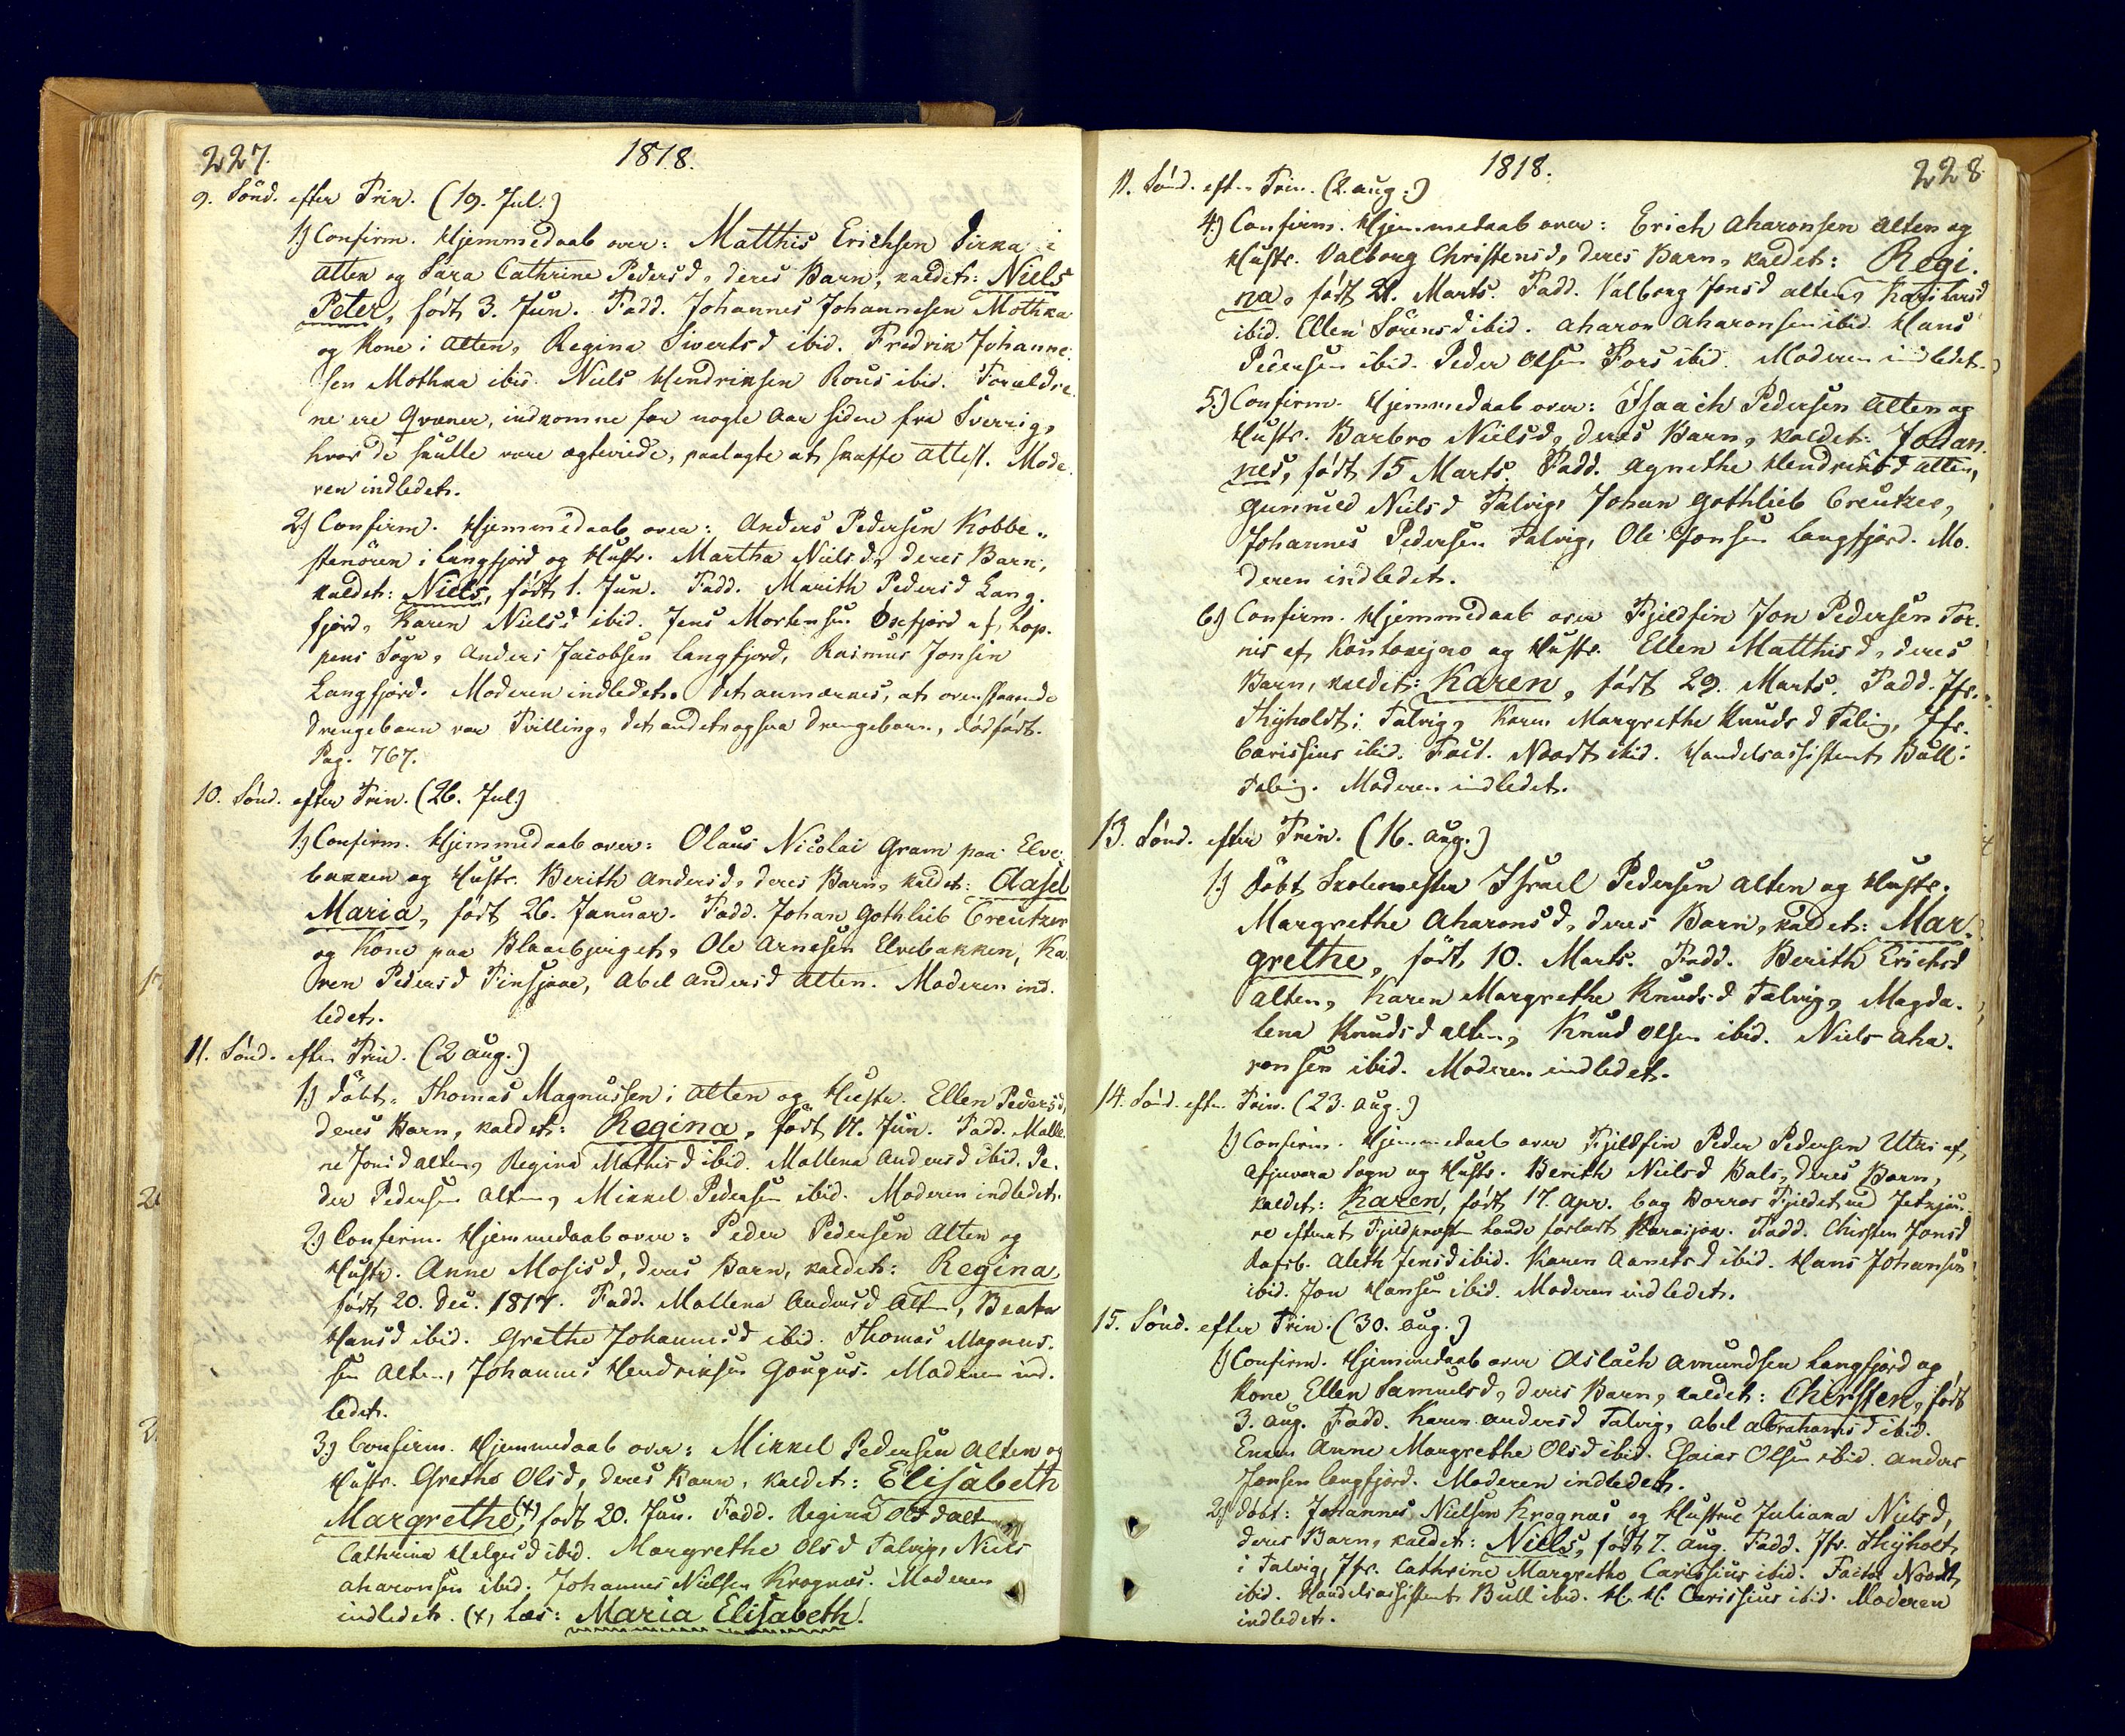 227.
1818.
9. Sönd. efter Trin. (19. Jul.)
1.) Confirm. Hjemmedaab over: Matthis Erichsen Sirka i
Alten og Sara Cathrine Pedersd, deres Barn, kaldet: Niels
Peter, födt 3. Jun. Fadd. Johannes Johannesen Mothka
og Kone i Alten, Regina Siwertsd ibid. Fredrik Johanne-
sen Mothka ibid. Niels Hendriksen Rous ibid. Forældre
ne ere Qvæner, indkomne for nogle Aar siden fra Sverrig,
hvor de skulle være ægteviede, paalagte at skaffe Attest. Mode
ren indledet.
2.) Confirm. Hjemmedaab over: Anders Pedersen Kobbe-
stenören i Langfjord og Hustr. Martha Nielsd, deres Barn,
kaldet: Niels, födt 1. Jun. Fadd. Marith Pedersd Lang-
fjord, Karen Nielsd ibid. Jens Mortensen Öxfjord af Lop-
pens Sogn, Anders Jacobsen Langfjord, Rasmus Jonsen
Langfjord. Moderen indledet. Det anmærkes, at ovenstaaende
Drengebarn var Tvilling, det andet ogsaa Drengebarn, dödfödt.
Pag. 767.
10. Sönd. efter Trin. (26. Jul.)
1.) Confirm. Hjemmedaab over: Olaus Nicolai Gram paa Elve-
bakken og Hustr. Berith Andersd, deres Barn, kaldet: Aasel
Maria, födt 26. Januar. Fadd. Johan Gothlieb Creutzer
og Kone paa Blaaebjerget, Ole Arnesen Elvebakken, Ka
ren Pedersd Finsjaae, Abel Andersd Alten. Moderen ind-
ledet.
11. Sönd. efter Trin. (2 Aug.)
1.) Döbt: Thomas Magnussen i Alten og Hustr. Ellen Pedersd,
deres Barn, kaldet: Regina, födt 17. Jun. Fadd. Malle
ne Jonsd Alten, Regina Mathisd ibid. Mallena Andersd ibid. Pe-
der Pedersen Alten, Mikkel Pedersen ibid. Moderen indledet.
2.) Confirm. Hjemmedaab over: Peder Pedersen Alten og
Hustr. Anne Mosisd, deres Barn, kaldet: Regina,
födt 20. Dec. 1817. Fadd. Mallena Andersd Alten, Beata
Hansd ibid. Grethe Johannesd ibid. Thomas Magnus-
sen Alten, Johannes Hendriksen Goupus. Moderen ind-
ledet.
3.) Confirm. Hjemmedaab over: Mikkel Pedersen Alten og
Hustr. Grethe Olsd, deres Barn, kaldet: Elisabeth
Margrethe, (x) födt 20. Jan. Fadd. Regina Olsd Alten
Cathrina Helgesd ibid. Margrethe Olsd Talvig, Niels
Aharonsen ibid. Johannes Nielsen Krognæs. Moderen
indledet. (x, Læs: Maria Elisabeth!
1818.
228
11. Sönd. efter Trin. (2. Aug.)
4.) Confirm. Hjemmedaab over: Erich Aharonsen Alten og
Hustr. Valborg Christensd, deres Barn, kaldet: Regi-
na, födt 21. Marts. Fadd. Valborg Jonsd Alten, Kari Larsd
ibid. Ellen Sörensd ibid. Aharon Aharonsen ibid. Hans
Pedersen ibid. Peder Olsen Fors ibid. Moderen indledet.
5.) Confirm. Hjemmedaab over: Isaach Pedersen Alten og
Hustr. Barbro Nielsd, deres Barn, kaldet: Johan
nes, födt 15 Marts. Fadd. Agnethe Hendriksd Alten,
Gunnild Nielsd Talvig, Johan Gothlieb Creutzer,
Johannes Pedersen Talvig, Ole Jonsen Langfjord. Mo-
deren indledet.
6.) Confirm. Hjemmedaab over Fjeldfin Jon Pedersen Tor-
nis af Koutokejno og Hustr. Ellen Matthisd, deres
Barn, kaldet: Karen, födt 29. Marts. Fadd. Jfr.
Thyholdt i Talvig, Karen Margrethe Knudsd Talvig, Jfr.
Carissius ibid. Fact. Noodt ibid. Handelsassistent Bull i
Talvig. Moderen indledet.
13. Sönd. efter Trin. (16. Aug.)
1.) Döbt Skolemester Israel Pedersen Alten og Hustr.
Margrethe Aharonsd, deres Barn, kaldet: Mar-
grethe, födt 10. Marts. Fadd. Berith Erichsd
Alten, Karen Margrethe Knudsd Talvig, Magda-
lena Knudsd Alten, Knud Olsen ibid. Niels Aha-
ronsen ibid. Moderen indledet.
14. Sönd. efter Trin. (23. Aug.)
1.) Confirm. Hjemmedaab over Fjeldfin Peder Pedersen Utsi af
Afjuvara Sogn og Hustr. Berith Nielsd Bals, deres Barn,
kaldet: Karen, födt 17. Apr. bag Borras Fjeldet ved
efterat Fjeldprovsten havde forladt Karasjok. Fadd. Chirsten Jonsd
Aleth Jensd ibid. Karen ibid. Hans Johansen
ibid. Jon Hansen ibid. Moderen indledet.
15. Sönd. efter Trin. (30. Aug.)
1.) Confirm. Hjemmedaab over Aslach Amundsen Langfjord og
Kone Ellen Samuelsd, deres Barn, kaldet: Chirsten, födt
3. Aug. Fadd. Karen Andersd Talvig, Abel Abrahamsd ibid.
Enken Anne Margrethe Olsd ibid. Esaias Olsen ibid. Anders
Jonsen Langfjord. Moderen indledet.
2.) Döbt: Johannes Nielsen Krognæs og Hustrue Juliana Nielsd,
deres Barn, kaldet: Niels, födt 7. Aug. Fadd. Jfr. Thyholt
i Talvig, Jfr. Cathrine Margrethe Carissius ibid. Factor Noodt
ibid. Handelsassistent Bull ibid. H. H. Carissius ibid. Moderen
indledet.